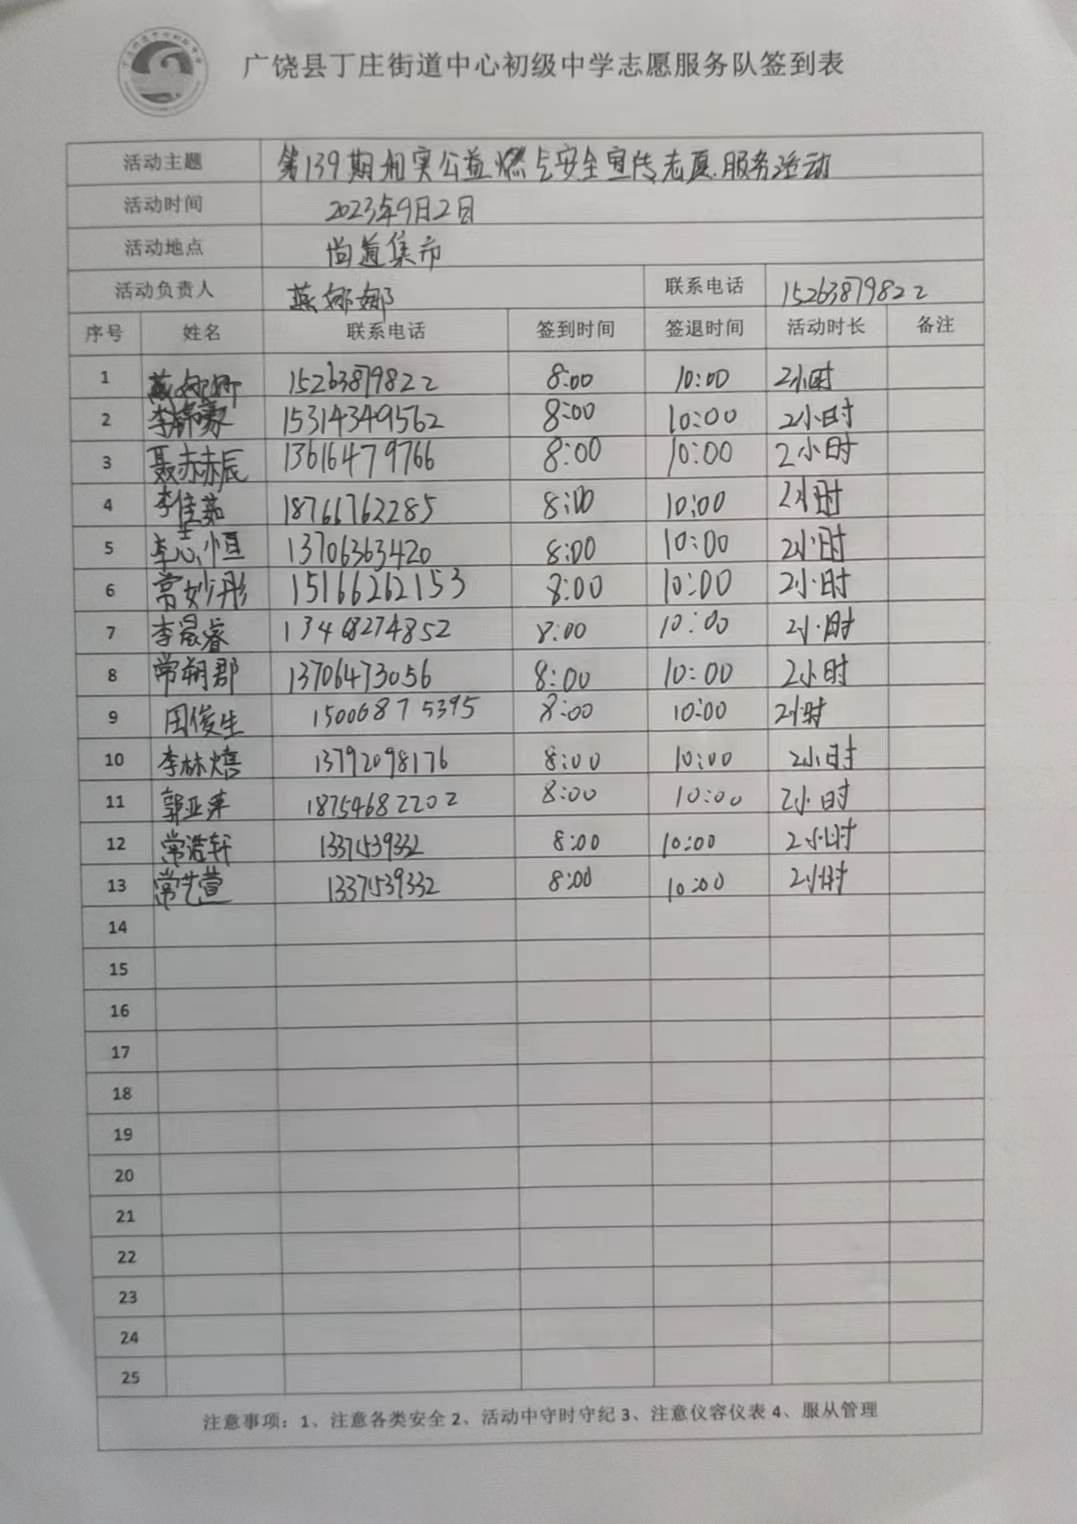 广饶县丁庄街道中心初级中学志愿服务队签到表
活动主题 第139期相实公益燃气安全宣传志愿服务活动
活动时间 2023年9月2日
活动地点 尚道集市
活动负责人 燕娜娜 联系电话 15263879822
序号 姓名 联系电话 签到时间 签退时间 活动时长 备注
1 燕娜娜 15263879822 8:00 10:00 2小时
2 李锦豪 15314349562 8:00 10:00 2小时
3 聂赤赤辰 13616479766 8:00 10:00 2小时
4 李佳茹 18766762285 8:00 10:00 2小时
5 李志恒 13706363420 8:00 10:00 2小时
6 常妙彤 15166262153 8:00 10:00 2小时
7 李晟睿 13468274852 8:00 10:00 2小时
8 常朝郡 13706473056 8:00 10:00 2小时
9 田俊生 15006875395 8:00 10:00 2小时
10 李林熺 13792098176 8:00 10:00 2小时
11 郭亚萍 18754682202 8:00 10:00 2小时
12 常浩轩 13371539332 8:00 10:00 2小时
13 常艺萱 13371539332 8:00 10:00 2小时
14
15
16
17
18
19
20
21
22
23
24
25
注意事项：1、注意各类安全 2、活动中守时守纪 3、注意仪容仪表 4、服从管理